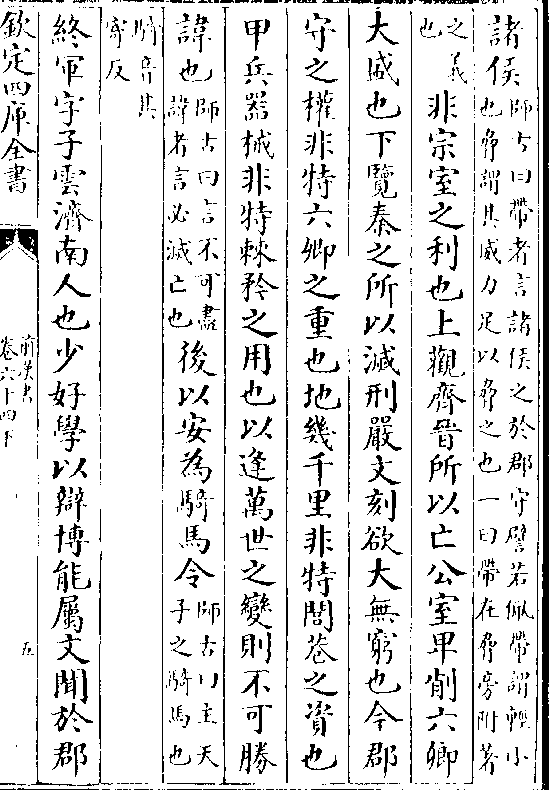 諸侯師古曰帶者言諸侯之於郡守譬若佩帶謂輕小
也脅謂其威力足以脅之也一曰帶在脅旁附著
之義
也非宗室之利也上觀齊晉所以亡公室卑削六卿
大盛也下覽秦之所以滅刑嚴文刻欲大無窮也今郡
守之權非特六卿之重也地幾千里非特閭巷之資也
甲兵器械非特棘矜之用也以逢萬世之變則不可勝
諱也師古曰言不可盡
諱者言必滅亡也後以安為騎馬令師古曰主天
子之騎馬也
騎音其
寄反
終軍字子雲濟南人也少好學以辯博能屬文聞於郡
欽定四庫全書
前漢書
卷六十四下
五